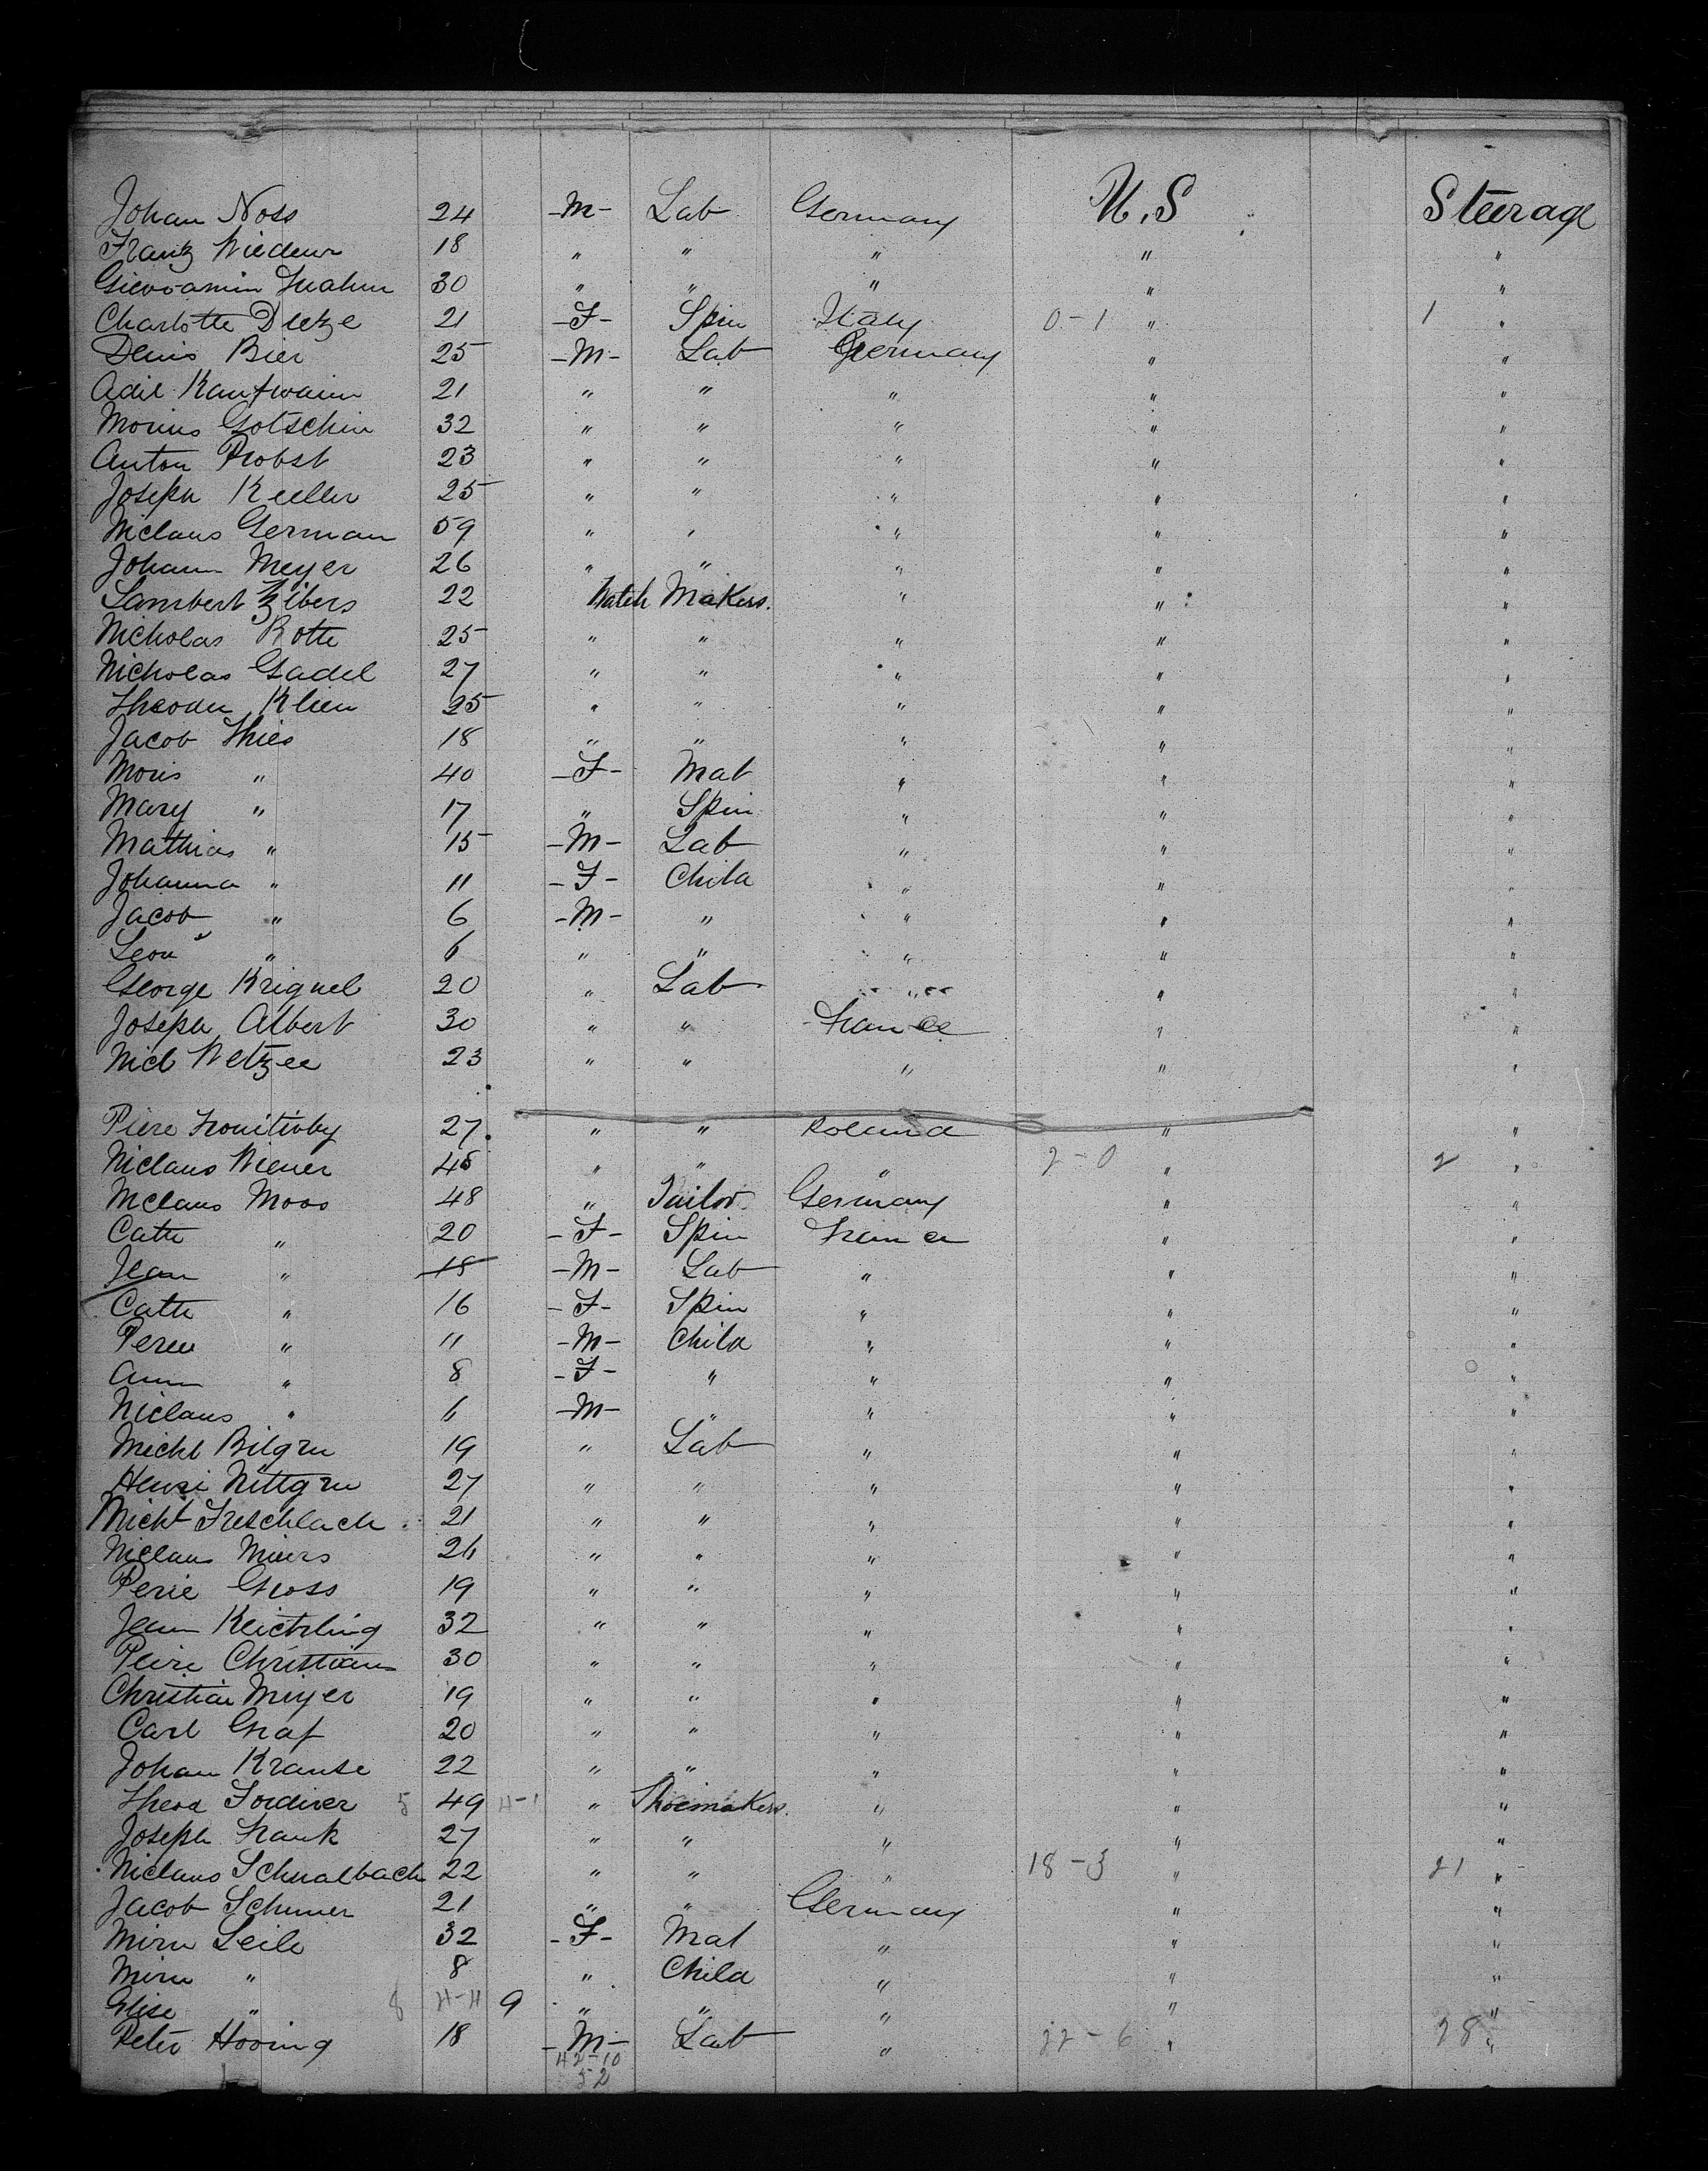 Johan Noss 24 -M- Lab Germany U.S Steerage
Frantz 18 " " " " "
30 " " " " "
Charlotte Dietze 21 -F- Spin Italy 0-1 " 1 "
Denis Bier 25 -M- Lab Germany " "
Adil 21 " " " " "
Gotschin 32 " " " " "
Anton Probst 23 " " " " "
Joseph Keller 25 " " " " "
Niclaus German 59 " " " " "
Johann Meyer 26 " " " " "
Lambert Zibers 22 Watch Makers. " " "
Nicholas Rotte 25 " " " " "
Nicholas Gadel 27 " " " " "
Theoder Klien 25 " " " " "
Jacob Thies 18 " " " " "
Moris " 40 -F- Mat " " "
Mary " 17 " Spin " " "
Mathias " 15 -M- Lab " " "
Johanna " 11 -F- Child " " "
Jacob " 6 -M- " " " "
Leon " 6 " " " " "
George Krignel 20 " Lab " " "
Joseph Albert 30 " " France " "
Nicl Wetzel 23 " " " " "
Piere 27 " " Poland " "
Niclaus Wiener 48 " " " 2-0 " 2 "
Niclaus Moos 48 " Tailor Germany " "
Cath " 20 -F- Spin France " "
Jean " 18 -M- Lab " " "
Cath " 16 -F- Spin " " "
" 11 -M- Child " " "
Ann " 8 -F- " " " "
Niclaus " 6 -M- " " " "
Michl Bilgru 19 " Lab " " "
Henri Nittgru 27 " " " " "
Michl Freschlach 21 " " " " "
Niclaus 26 " " " " "
Perie Gross 19 " " " " "
Jean Keichling 32 " " " " "
Peire Christian 30 " " " " "
Christian Meyer 19 " " " " "
Carl Graf 20 " " " " "
Johan Krause 22 " " " " "
Theod 5 49 4-1 " Shoemakers. " " "
Joseph Frank 27 " " " " "
Niclaus Schwalbach 22 " " " 18-3 " 21 "
Jacob 21 " " Germany " "
Leile 32 -F- Mat " " "
" 8 " Child " " "
Elise " 8 4-4 9 " " " " "
Peter Hooing 18 -M- Lab " 22-6 " 28 "
42-10
52